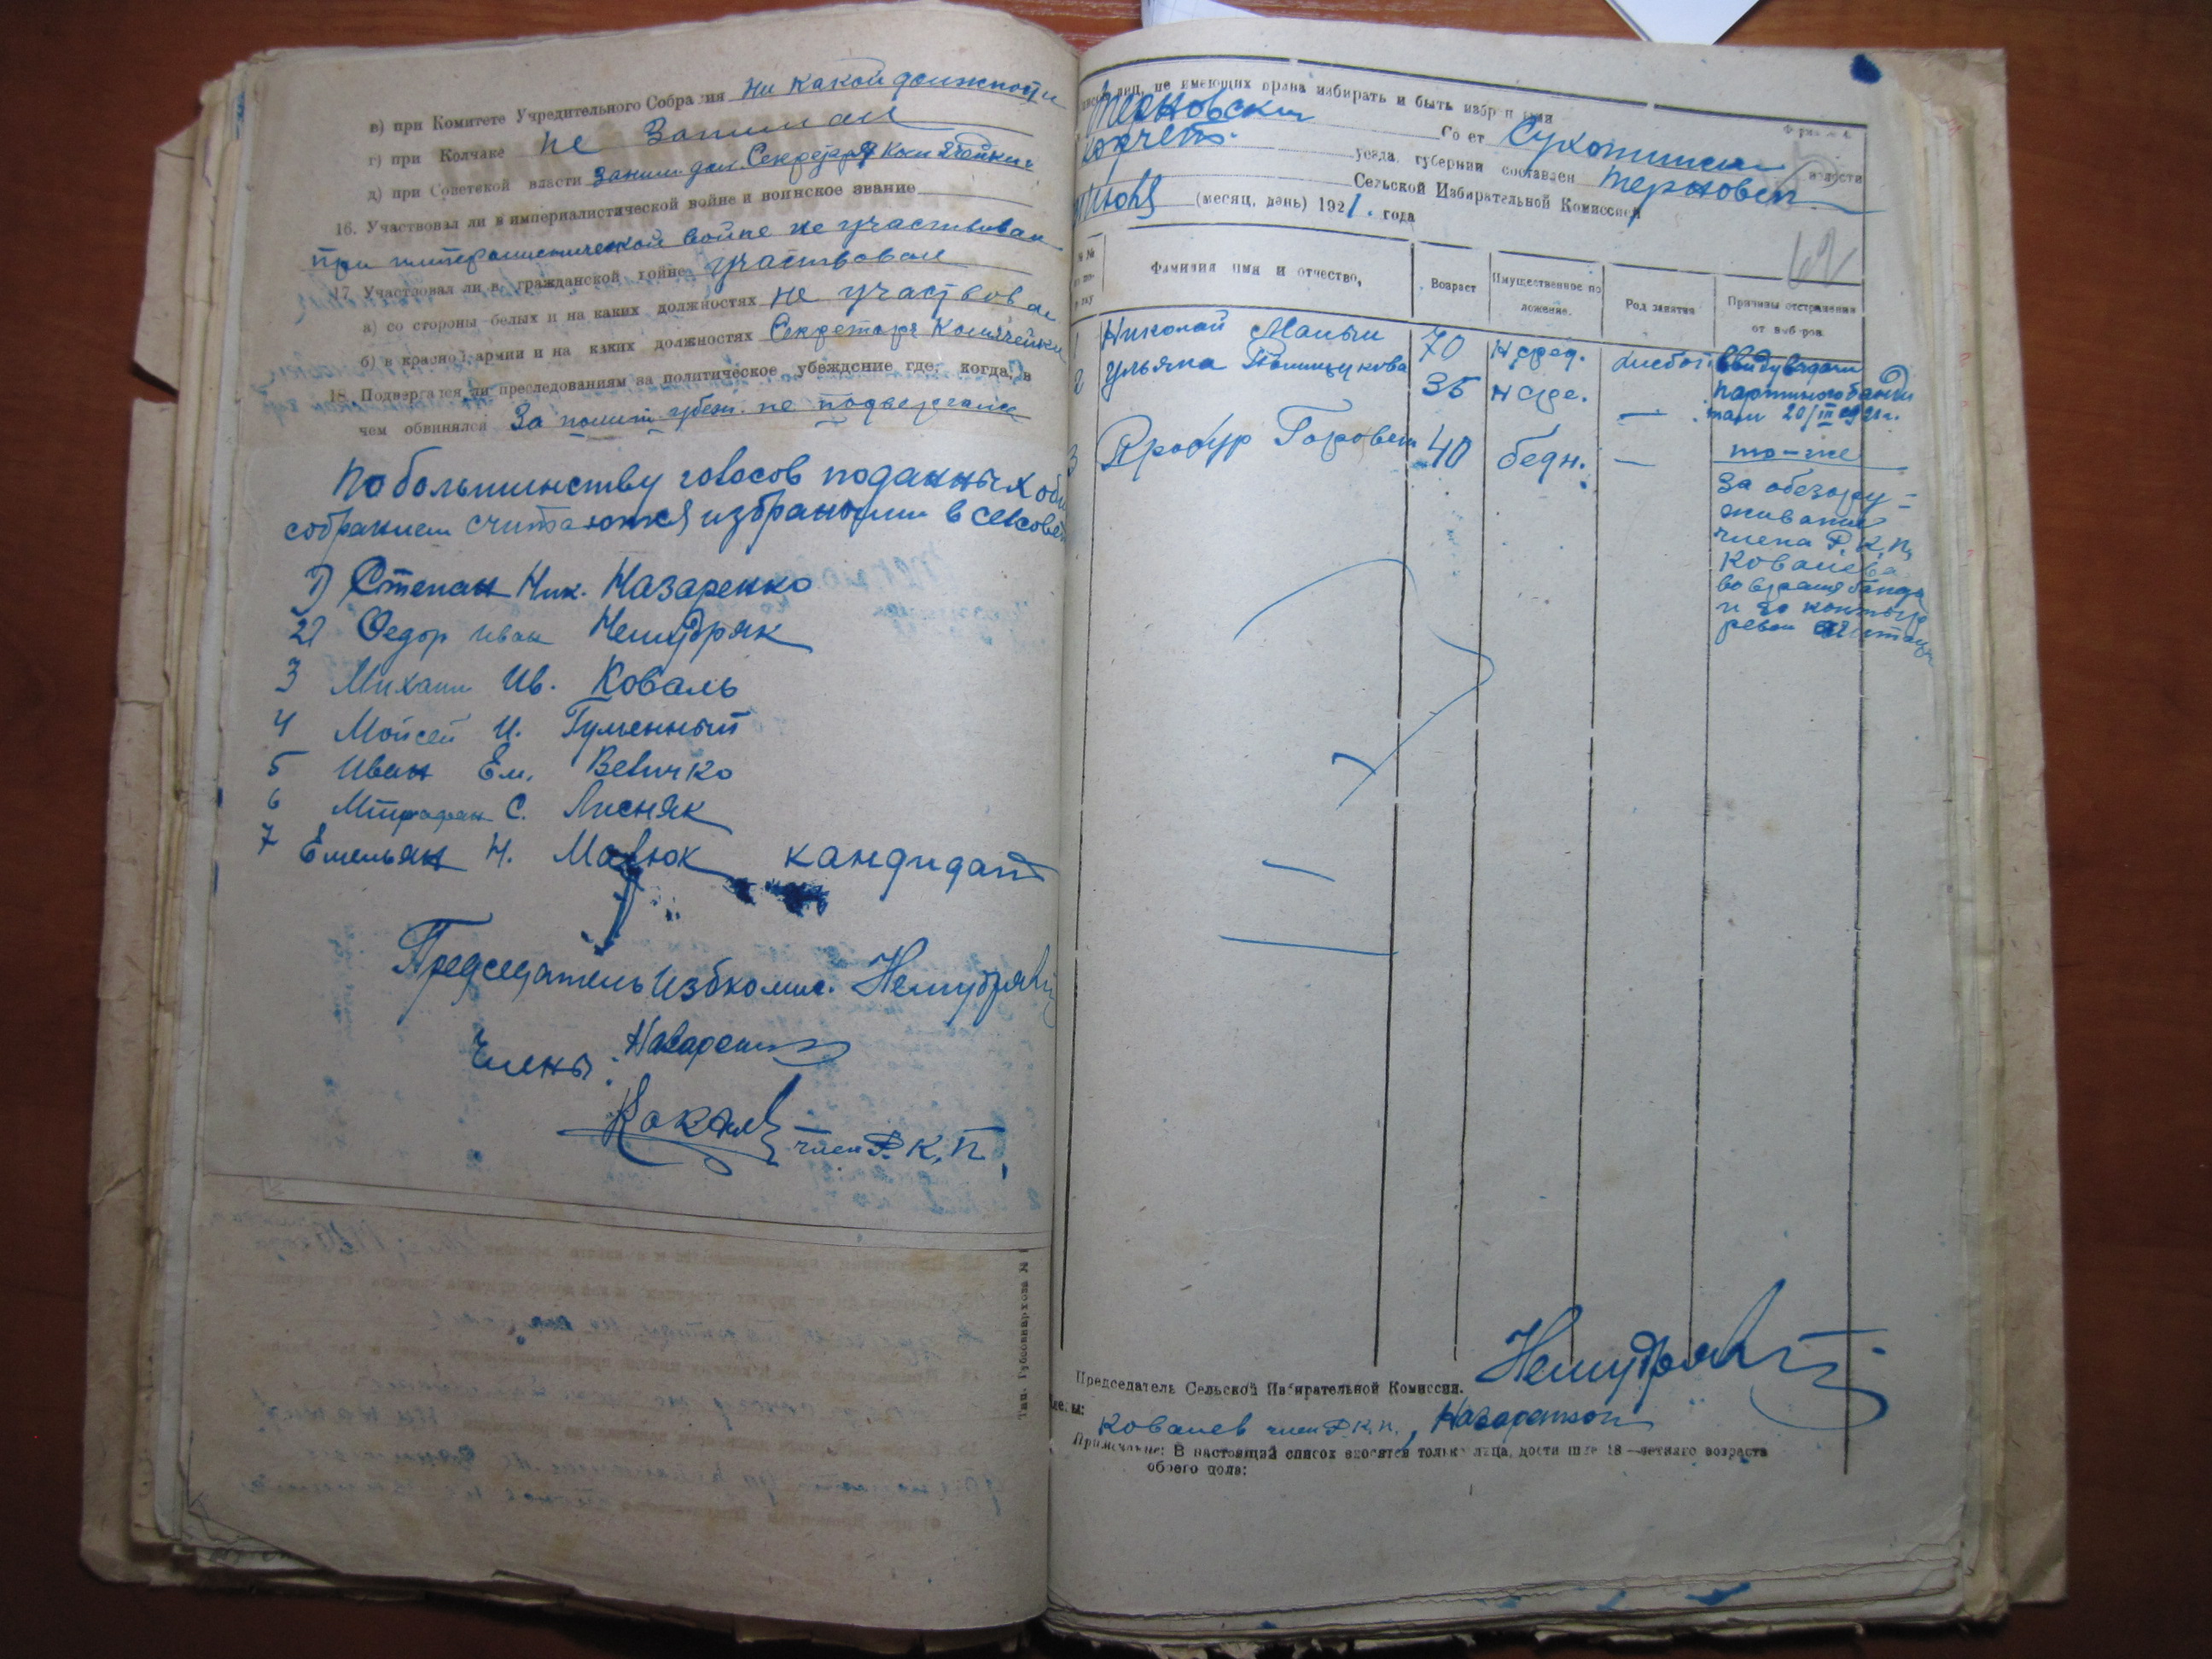 в) при Комитете Учредительного Собрания ни какой должности
г) при Колчаке не занимал
д) при Советской власти заним. дол. Секретаря Ком Ячейки
16. Участвовал ли в империалистической войне и воинское звание
При империалистической войне не участвовал
17. Участвовал ли в гражданской войне участвовал
а) со стороны белых и на каких должностях не участвовал
б) в красной армии и на каких должностях Секретаря Комячейки
18. Подвергался ли преследованиям за политическое убеждение где, когда, в
чем обвинялся За полит. убеж. не подвергался
По большинству голосов поданных
собранием считаются избраными в сельсовет
1) Степан Ник. Назаренко
2) Федор Иван Немудряк
3 Михаил Ив. Коваль
4 Мойсей И. Гуменный
5 Иван Ем. Величко
6 Митрофан С. Лисняк
7 Емельян Н. Мазюк кандидат
Председатель Избкомис.
Члены: Назаренко
Ковалев член Р.К.П.
Тип. Губсовнархоза №
лиц, не имеющих права избирать и быть избранными
Форма № 4.
Терновский Совет Сухотинской волости
Кокчет. уезда, губернии составлен Терновск
Сельской Избирательной Комиссией
Июня (месяц, день) 1921. года
62
№№ по по-рядку
Фамилия имя и отчество,
Возраст
Имущественное положение.
Род занятия
Причины отстранения от выборов
1 Николай 70 н сред. хлебоп. Ввиду выдачи
2 Ульяна 35 н сре. — партийного бандитами 20/III 1921 г.
3 Горовец 40 бедн. — то-же
За обезоруживание
члена Р.К.П.
Ковалева
во время банды
и за контр
револ агитацию
Председатель Сельской Избирательной Комиссии.
Члены:
Ковалев член Р.К.П., Назаренко
Примечание: В настоящий список вносятся только лица, достигшие 18—летнего возраста
обоего пола: